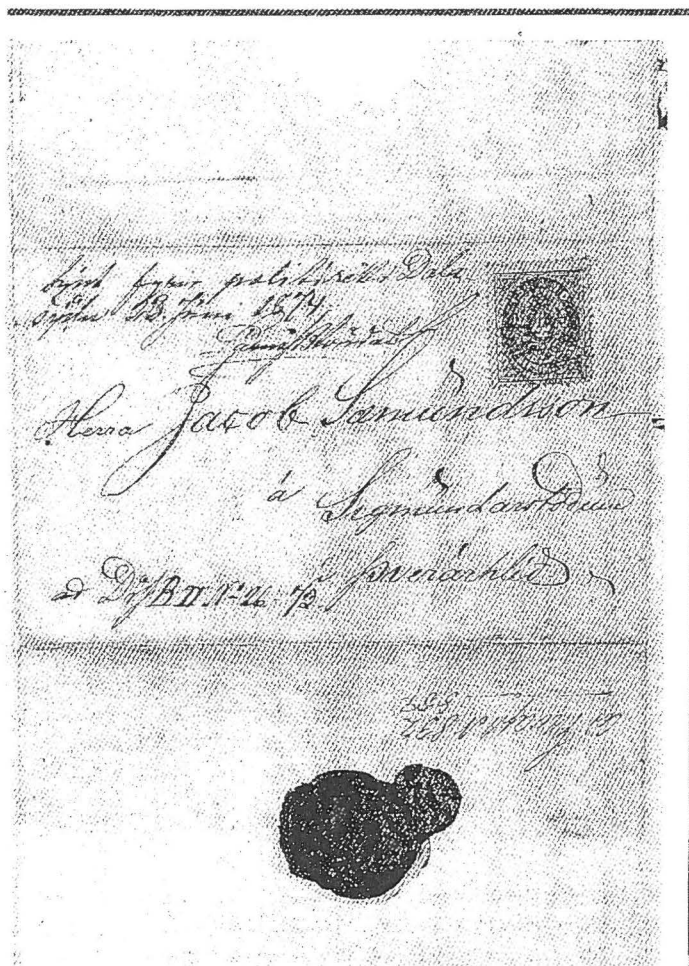 Sýnt fyrir pólitirétti Dala
sýslu 13. Júni 1874
Herra Jacob Sæmundsson
á Sigmundarstöðum
í Þverárhlíð
ad Df B II Nº 26 - 73